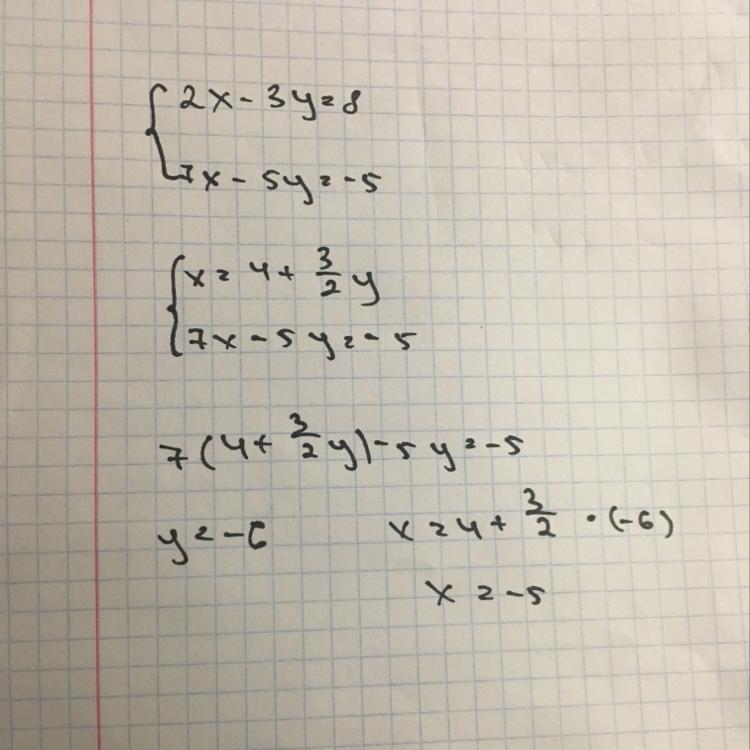 2x - 3y = 8
7x - 5y = -5
x = 4 + 3/2 y
7x - 5y = -5
7(4 + 3/2 y) - 5y = -5
y = -6 x = 4 + 3/2 · (-6)
x = -5